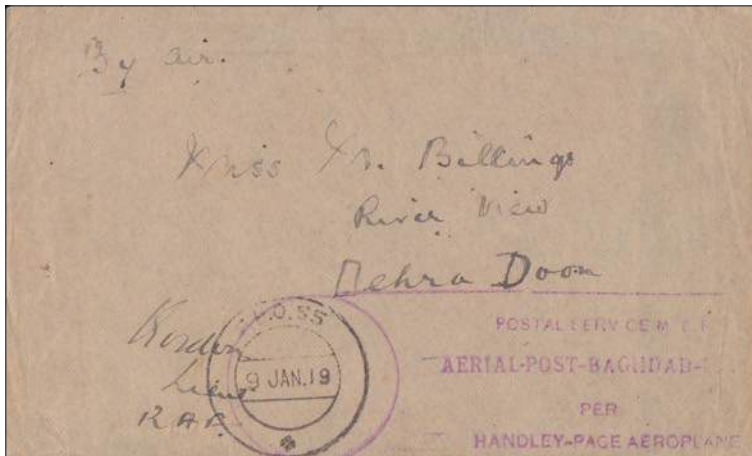 By air.
Miss M. Billings
River View
Dehra Doon
Lieut
R.A.F.
F.O.55
9 JAN.19
POSTAL SERVICE M.E.F.
AERIAL-POST-BAGHDAD-
PER
HANDLEY-PAGE AEROPLANE